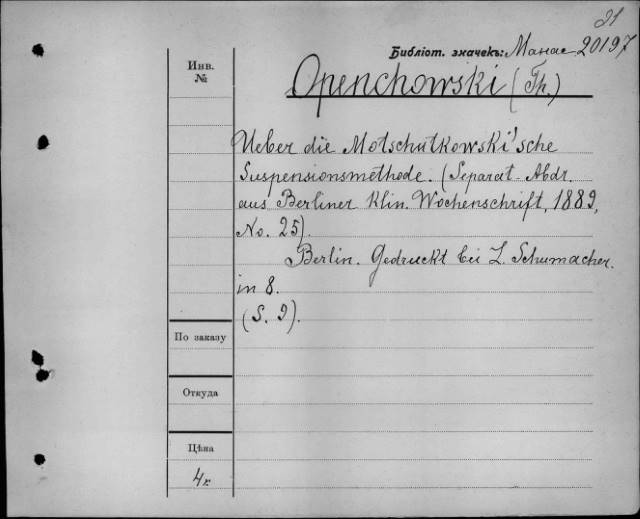 21
Библіот. значекъ: Манас 20197
Инв.
№
Openchowski (Th.)
Ueber die Motschutkowski'sche
Suspensionsmethode. (Separat-Abdr.
aus Berliner klin. Wochenschrift, 1889,
No. 25).
Berlin. Gedruckt bei L. Schumacher.
in 8.
(S. 9).
По заказу
Откуда
Цѣна
4к